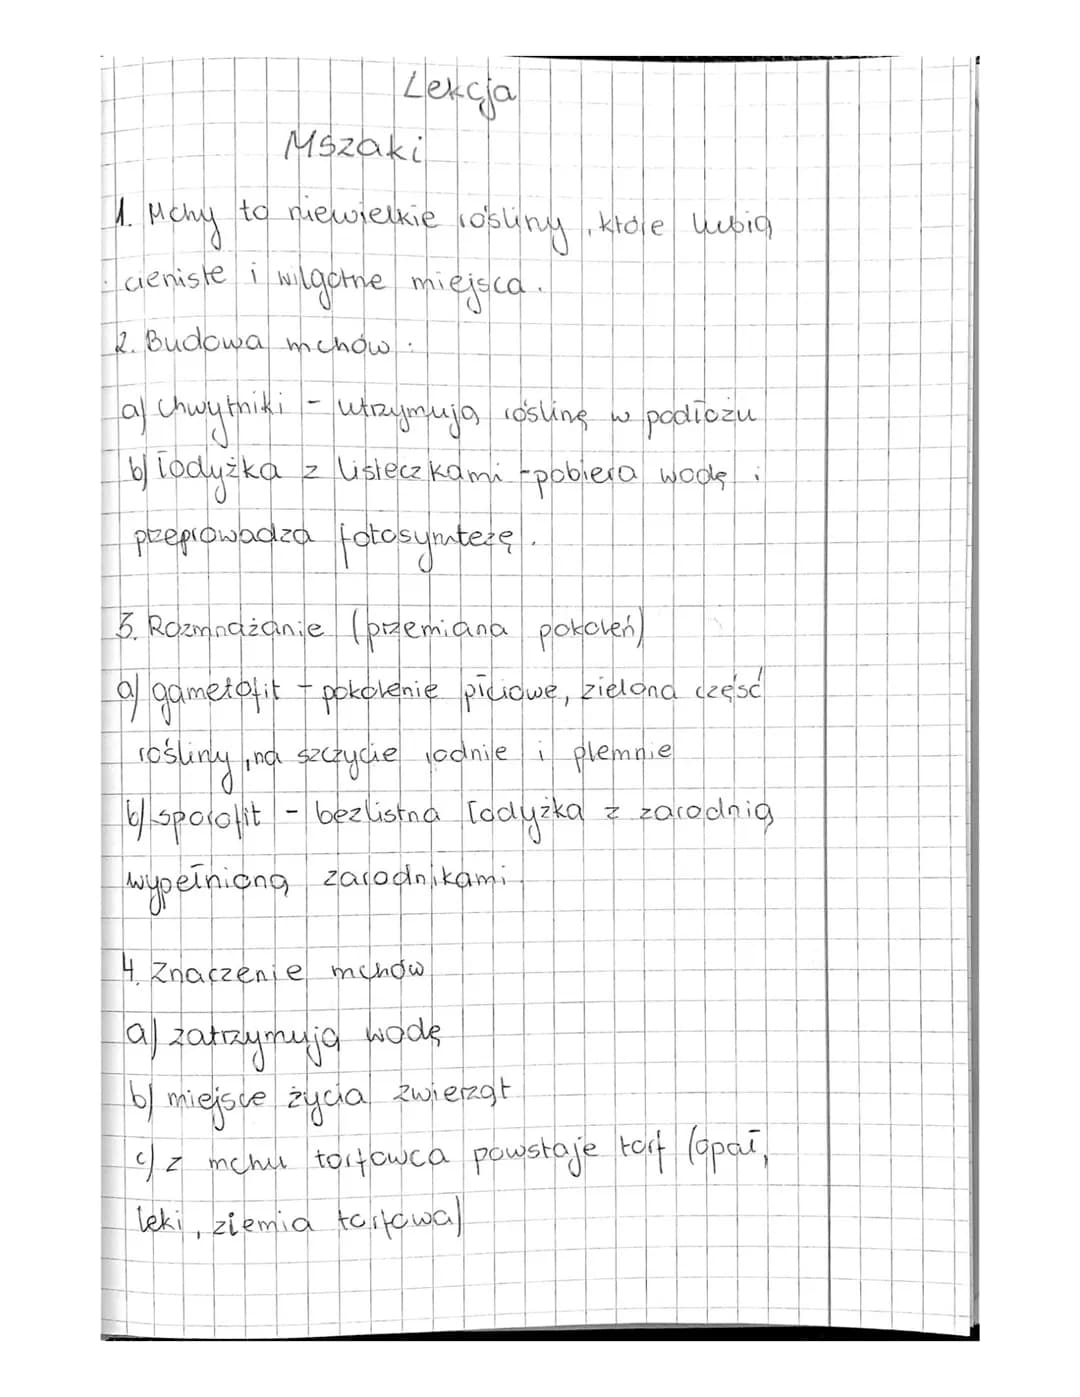 Lekcja
Mszaki
1. Mchy to niewielkie rośliny, które lubią
cieniste i wilgotne miejsca.
2. Budowa mchów:
a) chwytniki - utrzymują roślinę w podłożu
b) łodyżka z listeczkami - pobiera wodę i
przeprowadza fotosyntezę.
3. Rozmnażanie (przemiana pokoleń)
a) gametofit - pokolenie płciowe, zielona część
rośliny, na szczycie rodnie i plemnie
b) sporofit - bezlistna łodyżka z zarodnią
wypełnioną zarodnikami
4. Znaczenie mchów
a) zatrzymują wodę
b) miejsce życia zwierząt
c) z mchu torfowca powstaje torf (opał,
leki, ziemia torfowa)